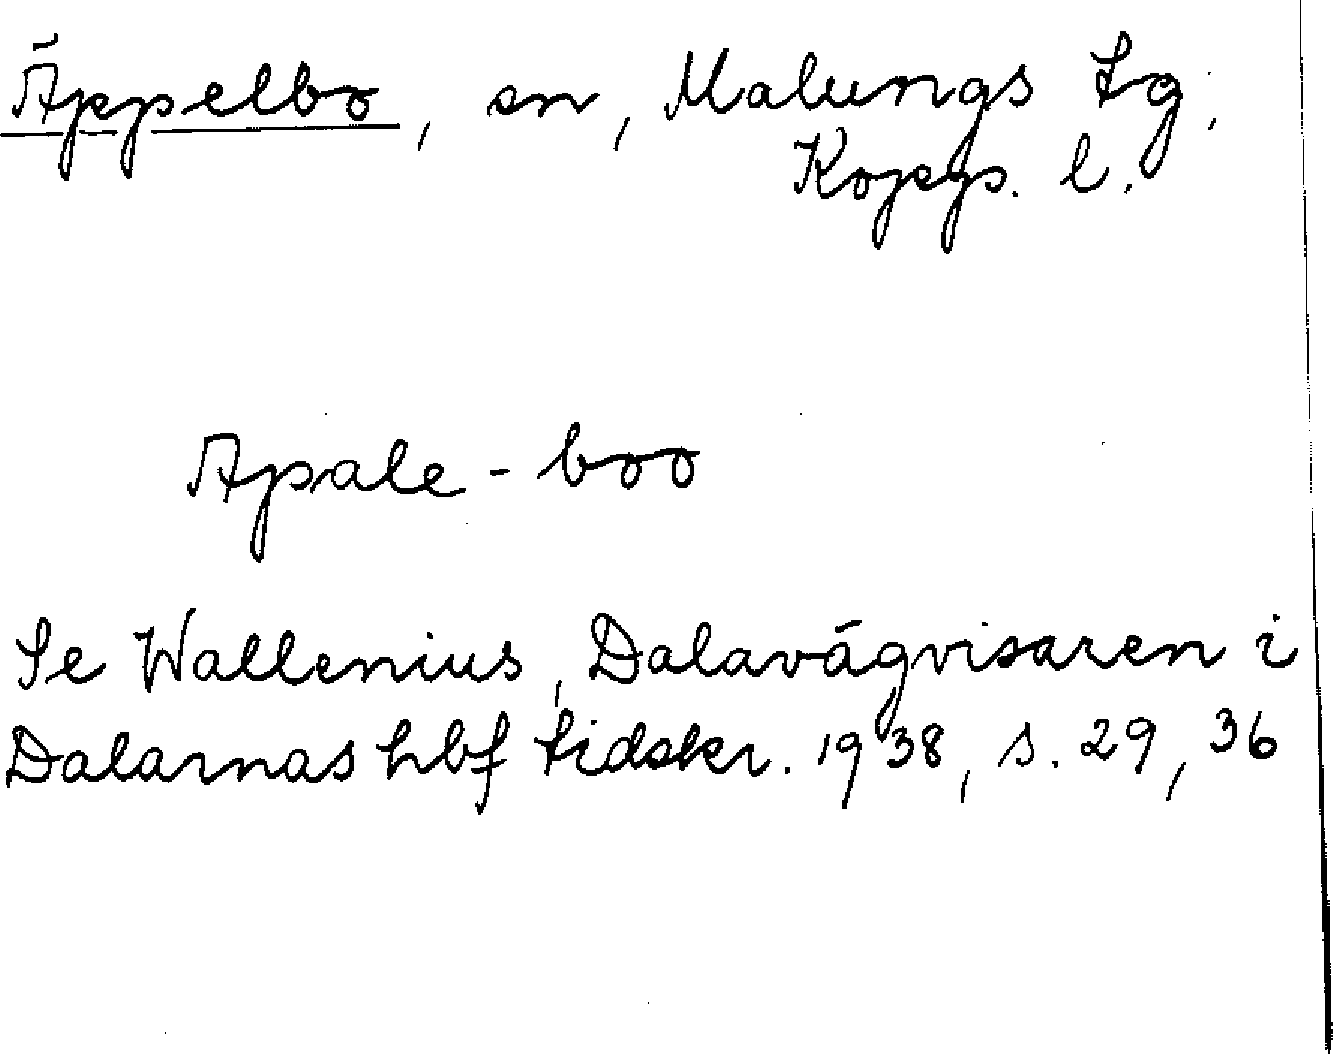 Äppelbo, sn, Malungs tg,
Kopps. l.
Apale-boo
Se Wallenius, Dalavägvisaren i
Dalarnas hbf tidskr. 1938, s. 29, 36